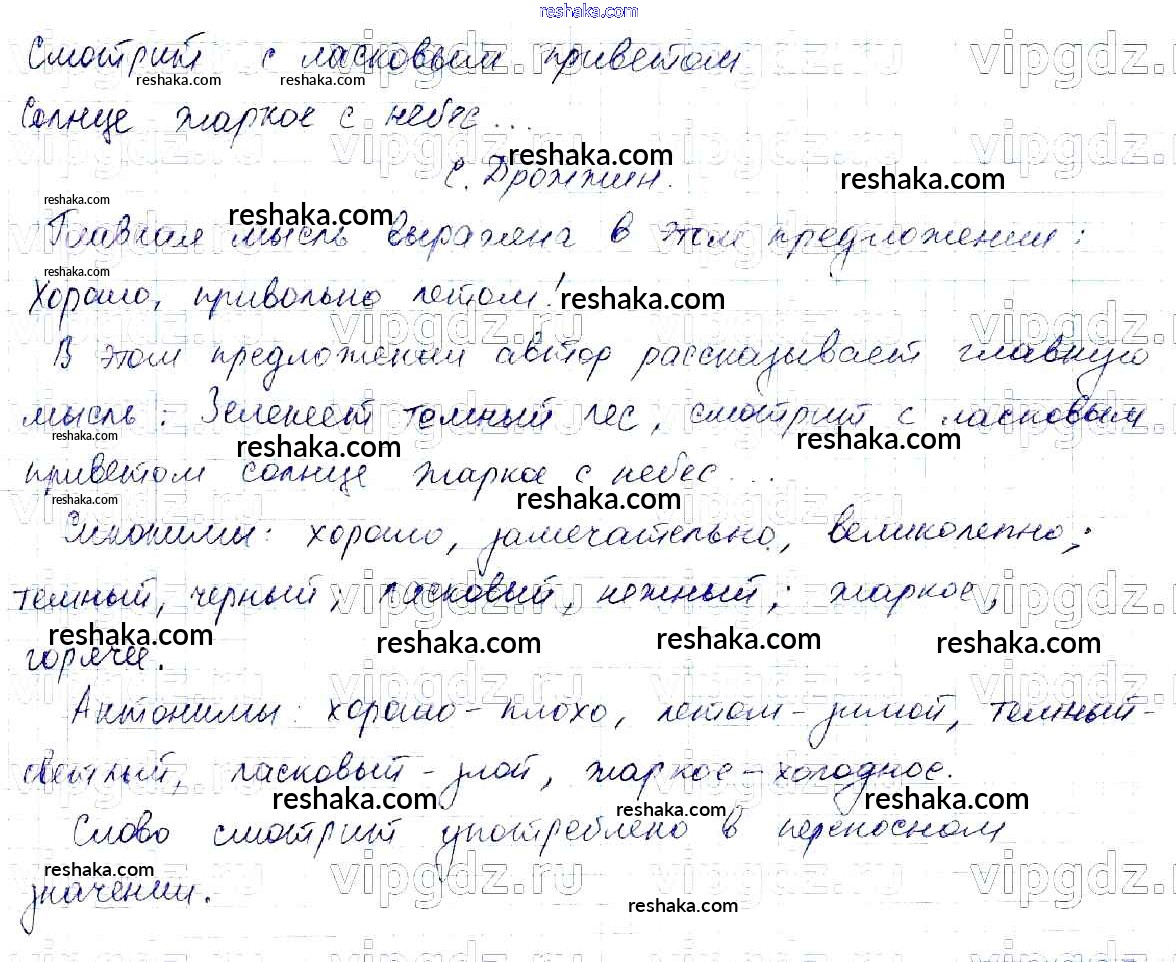 reshaka.com
Смотрит с ласковым приветом
Солнце жаркое с небес...
С. Дрожжин.
Главная мысль выражена в этом предложении:
Хорошо, привольно летом!
В этом предложении автор рассказывает главную
мысль: Зеленеет темный лес, смотрит с ласковым
приветом солнце жаркое с небес...
Синонимы: хорошо, замечательно, великолепно;
темный, черный; ласковый, нежный; жаркое,
горячее.
Антонимы: хорошо - плохо, летом - зимой, темный -
светлый, ласковый - злой, жаркое - холодное.
Слово смотрит употреблено в переносном
значении.